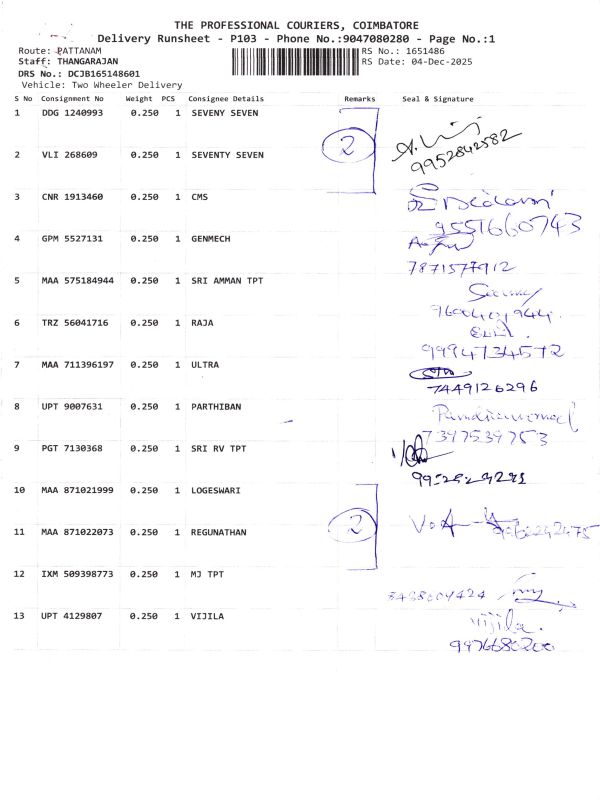 THE PROFESSIONAL COURIERS, COIMBATORE
Delivery Runsheet - P103 - Phone No.:9047080280 - Page No.:1
Route: PATTANAM RS No.: 1651486
Staff: THANGARAJAN RS Date: 04-Dec-2025
DRS No.: DCJB165148601
Vehicle: Two Wheeler Delivery
S No Consignment No Weight PCS Consignee Details Remarks Seal & Signature
1 DDG 1240993 0.250 1 SEVENY SEVEN
2 VLI 268609 0.250 1 SEVENTY SEVEN 2 9952842582
3 CNR 1913460 0.250 1 CMS
9551660743
4 GPM 5527131 0.250 1 GENMECH
7871577912
5 MAA 575184944 0.250 1 SRI AMMAN TPT
6 TRZ 56041716 0.250 1 RAJA
9994734572
7 MAA 711396197 0.250 1 ULTRA
7449126296
8 UPT 9007631 0.250 1 PARTHIBAN
7397539753
9 PGT 7130368 0.250 1 SRI RV TPT
10 MAA 871021999 0.250 1 LOGESWARI
11 MAA 871022073 0.250 1 REGUNATHAN 2
12 IXM 509398773 0.250 1 MJ TPT
13 UPT 4129807 0.250 1 VIJILA vijila.
9976680200